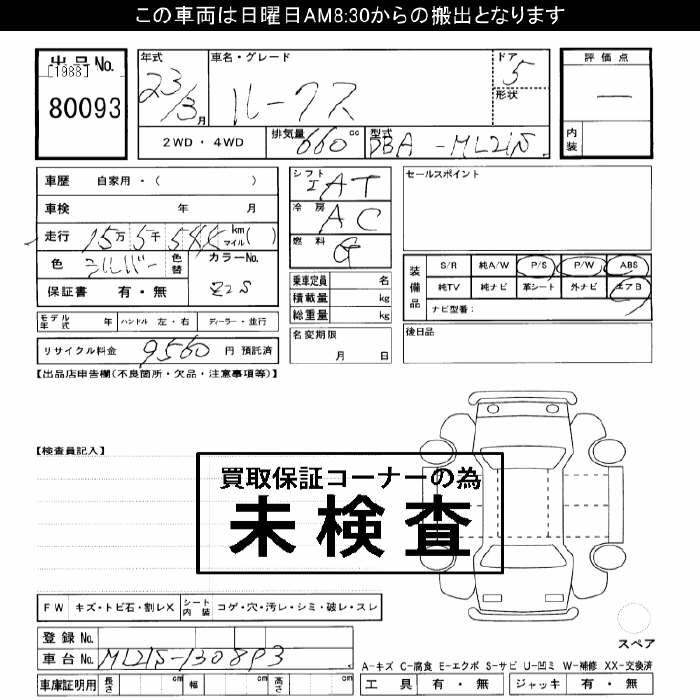 この車両は日曜日AM8:30からの搬出となります
出品No.
[1988]
80093
年式 車名・グレード ドア
23/3月 ルークス 5
形状
2WD・4WD 排気量 660 cc 型式 DBA-ML21S
評価点
—
内装
車歴 自家用・( )
車検 年 月
走行 15万 5千 km マイル( )
色 シルバー 色替 カラーNo.
保証書 有・無 Z2S
モデル年式 年 ハンドル 左・右 ディーラー・並行
リサイクル料金 9560 円 預託済
シフト IAT
冷房 AC
燃料 G
乗車定員 名
積載量 kg
総重量 kg
名変期限
月 日
セールスポイント
装備品
S/R 純A/W P/S P/W ABS
純TV 純ナビ 革シート 外ナビ エアB
ナビ型番:
後日品
【出品店申告欄(不良箇所・欠品・注意事項等)】
【検査員記入】
買取保証コーナーの為
未検査
FW キズ・トビ石・割レX シート内装 コゲ・穴・汚レ・シミ・破レ・スレ
登録No.
車台No. ML21S-130893
車庫証明用 長さ cm 幅 cm 高さ cm
スペア
A-キズ C-腐食 E-エクボ S-サビ U-凹ミ W-補修 XX-交換済
工具 有・無 ジャッキ 有・無